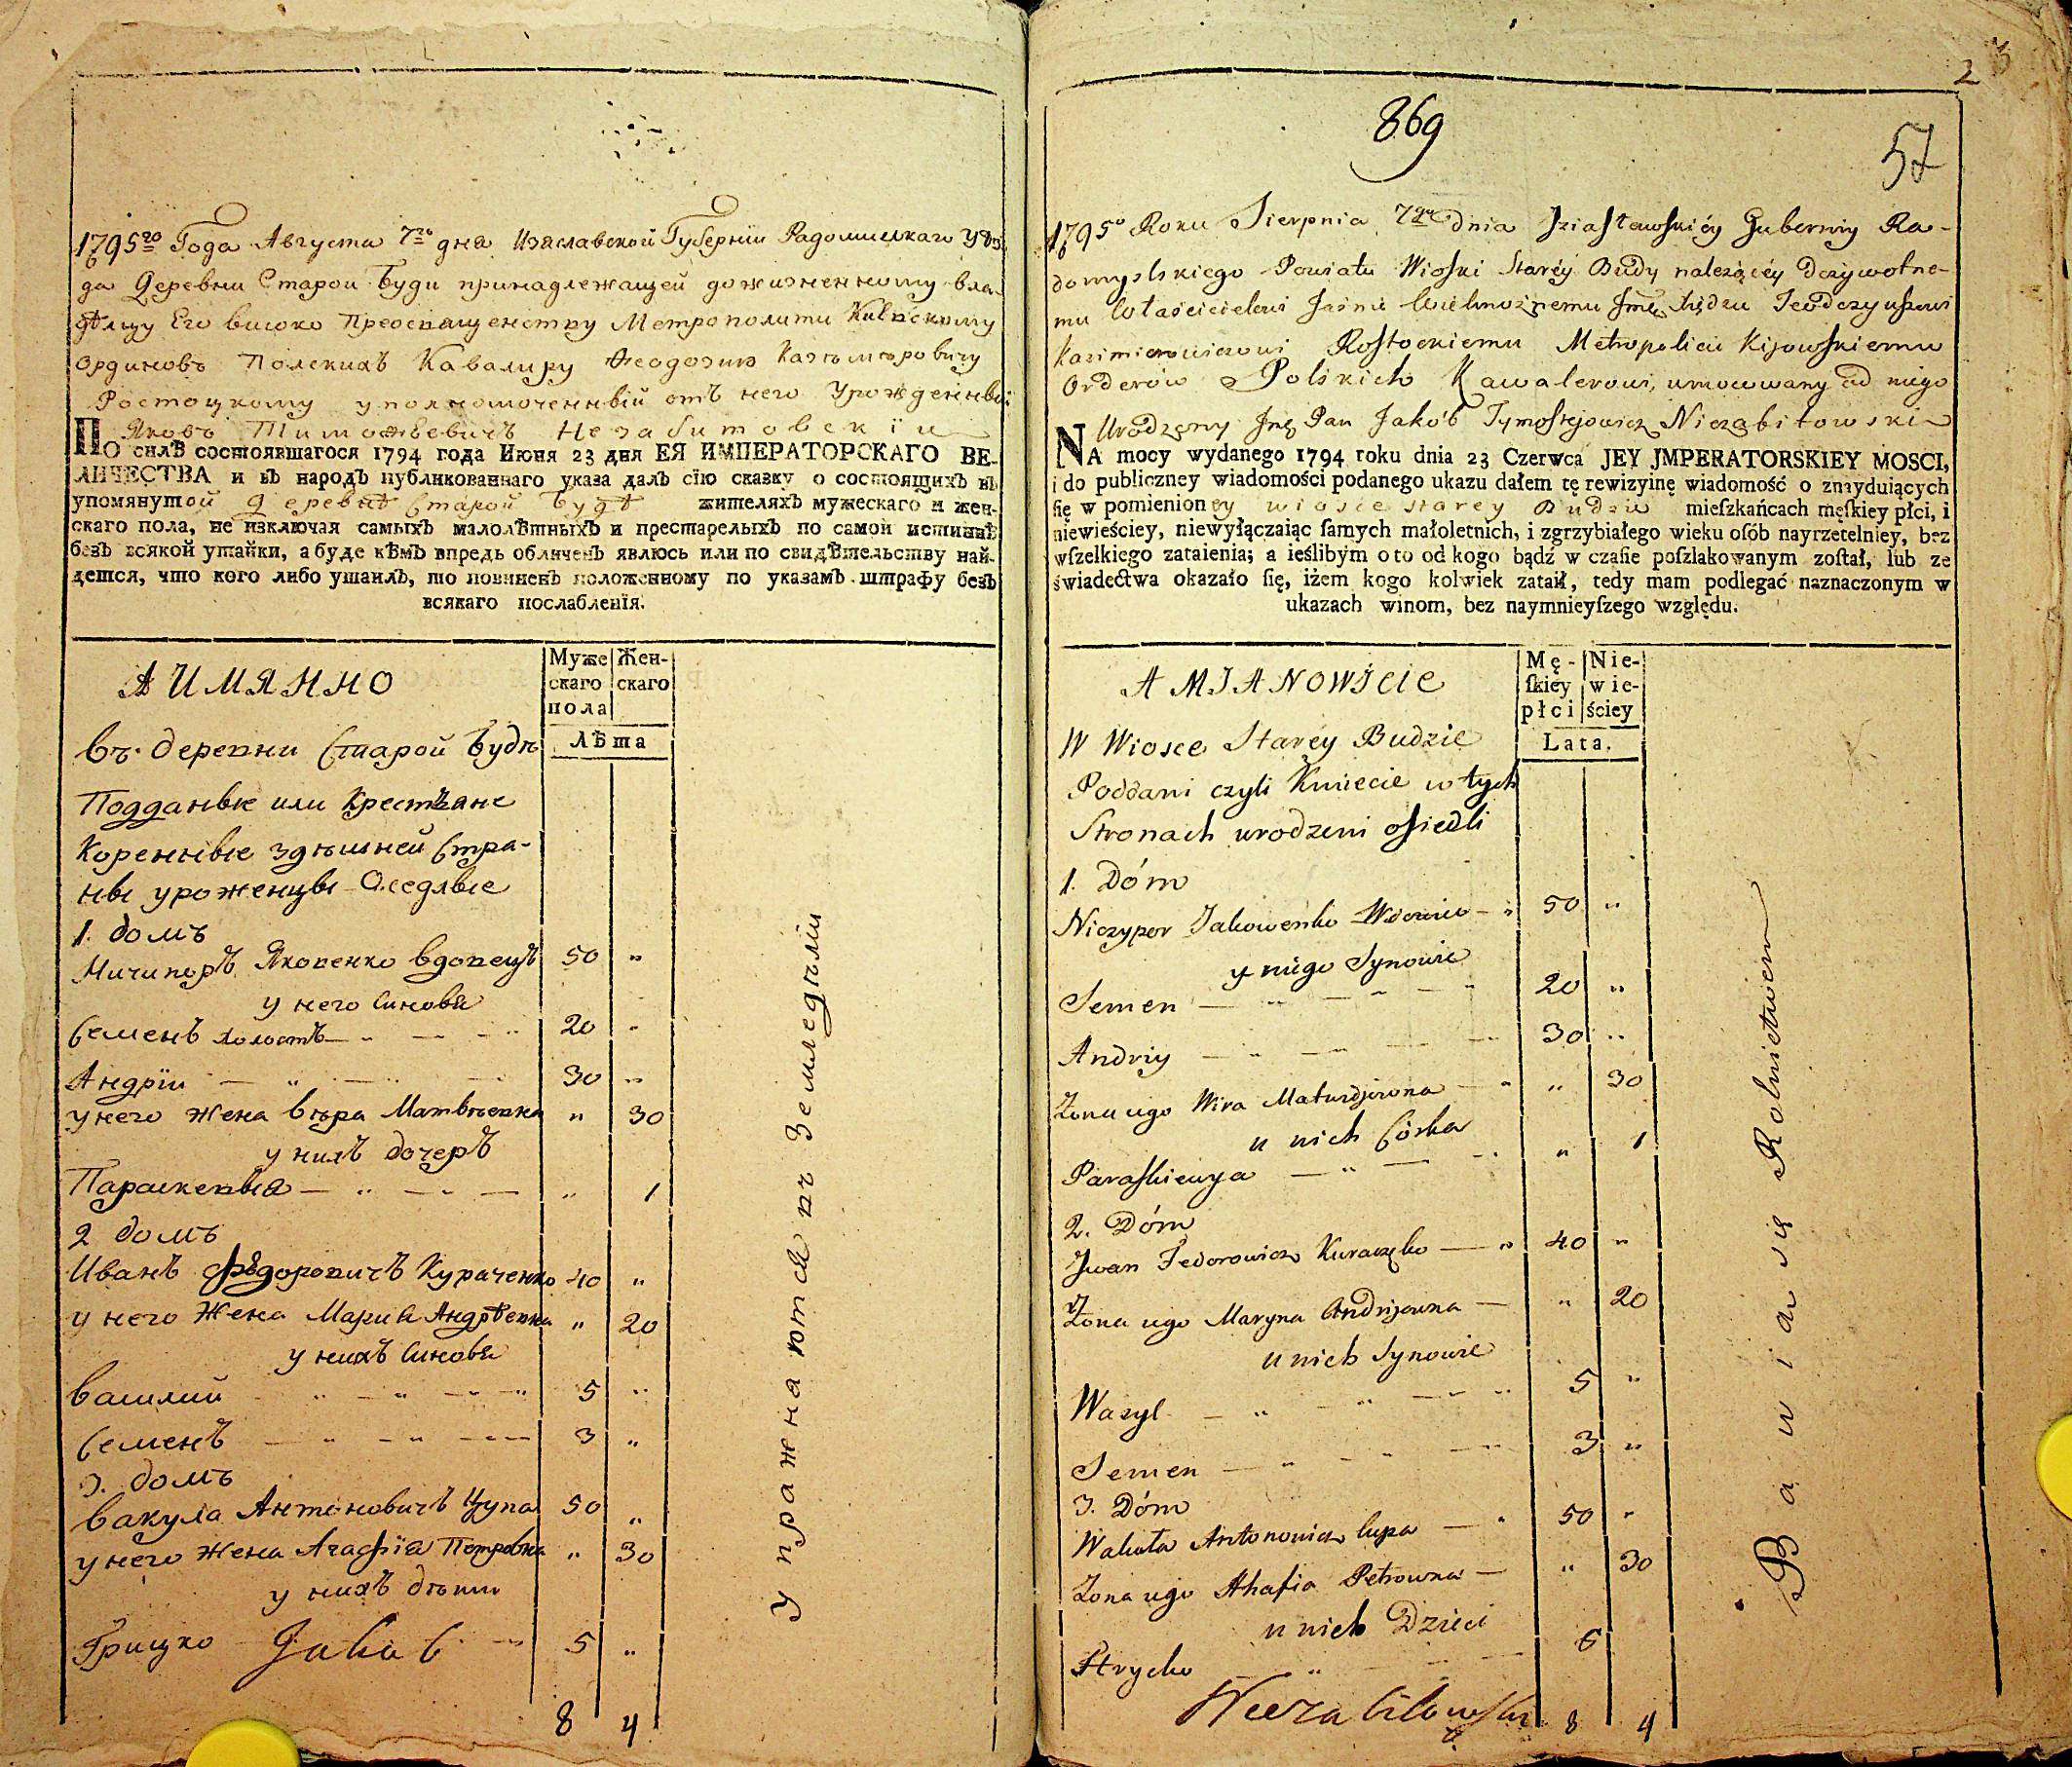 1795го Года Августа 7го дня Изяславской Губернїи Радомислкаго Уѣз
да Деревни Старои Буди принадлежащей дожизненному вла
дѣлцу Его високо Преосвященству Метрополити Киевскому
Ординовъ Полскихъ Кавалиру Феодозию Казѣмѣровичу
Ростоцкому уполномоченный отъ него Урожденный
Яковъ Тимофѣевичъ Незабитовскїи
ПО силѣ состоявшагося 1794 года Июня 23 дня ЕЯ ИМПЕРАТОРСКАГО ВЕ-
ЛИЧЕСТВА и въ народъ публикованнаго указа далъ сїю сказку о состоящихъ въ
упомянутой деревнѣ Старой Будѣ жителяхъ мужескаго и жен-
скаго пола, не изключая самыхъ малолѣтныхъ и престарелыхъ по самой истиннѣ
безъ всякой утайки, а буде кѣмъ впредь обличенъ явлюсь или по свидѣтельству най-
дется, что кого либо утаилъ, то повиненъ положенному по указамъ штрафу безъ
всякаго послабленїя.
А ИМЯННО
Муже
скаго
пола
Жен-
скаго
Лѣта
въ деревни Старой Будѣ
Подданые или Крестѣяне
Коренные здѣшней Стра-
ны уроженцы Оседлые
1. домъ
Ничипоръ Яковенко вдовецъ 50 "
у него Синовя
Семенъ холостъ 20 "
Андрїи 30 "
у него жена Вѣра Матвѣевна " 30
у нихъ дочеръ
Параскевия " 1
2 домъ
Иванъ Фѣдоровичъ Кураченко 40 "
у него Жена Мария Андрѣевна " 20
у нихъ Синовя
Василий 5 "
Семенъ 3 "
3. домъ
Вакула Антоновичъ Цупа 50 "
у него Жена Агафїя Петровна " 30
у нихъ дѣти
Грицко 5 "
Jakob
8 4
Упражнаются въ Земледѣлїи
2
869
57
1795o Roku Sierpnia 7go Dnia Jziasławskiéy Guberniy Ra-
domyslskiego Powiatu Wioski Staréy Budy należącéy Dożywotne-
mu Właścicielowi Jaśnie Wielmożnemu Jmć Xiędzu Teodozyuszowi
Kazimierowiczowi Rostockiemu Metropolicie Kijowskiemu
Orderów Polskich Kawalerowi, umocowany od niego
Urodzony Jmć Pan Jakób Tymofiejowicz Niezabitowski
NA mocy wydanego 1794 roku dnia 23 Czerwca JEY JMPERATORSKIEY MOSCI,
i do publiczney wiadomości podanego ukazu dałem tę rewizyinę wiadomość o znayduiących
ſię w pomienioney wiosce starey Budzie mieſzkańcach męſkiey płci, i
niewieściey, niewyłączaiąc ſamych małoletnich, i zgrzybiałego wieku oſób nayrzetelniey, bez
wſzelkiego zataienia; a ieślibym o to od kogo bądź w czaſie poſzlakowanym zoſtał, lub ze
świadectwa okazało ſię, iżem kogo kolwiek zataił, tedy mam podlegać naznaczonym w
ukazach winom, bez naymnieyſzego względu.
A MJANOWICIE
Mę-
ſkiey
płci
Nie-
wie-
ściey
Lata.
W Wiosce Staréy Budzie
Poddani czyli Kmiecie w tych
Stronach urodzeni osiedli
1. Dóm
Niczypor Jakowenko Wdowiec 50 "
u niego Synowie
Semen 20 "
Andriy 30 "
Żona iego Wira Matwiejowna " 30
u nich Córka
Paraskiewya " 1
2. Dóm
Jwan Fedorowicz Kuraczęko 40 "
Żona iego Maryna Andrijowna " 20
u nich Synowie
Wasyl 5 "
Semen 3 "
3. Dóm
Wakuła Antonowicz Cupa 50 "
Żona iego Ahafia Petrowna " 30
u nich Dzieci
Hrycko 5
Niezabitowski
8 4
Bawia się Rolnictwem